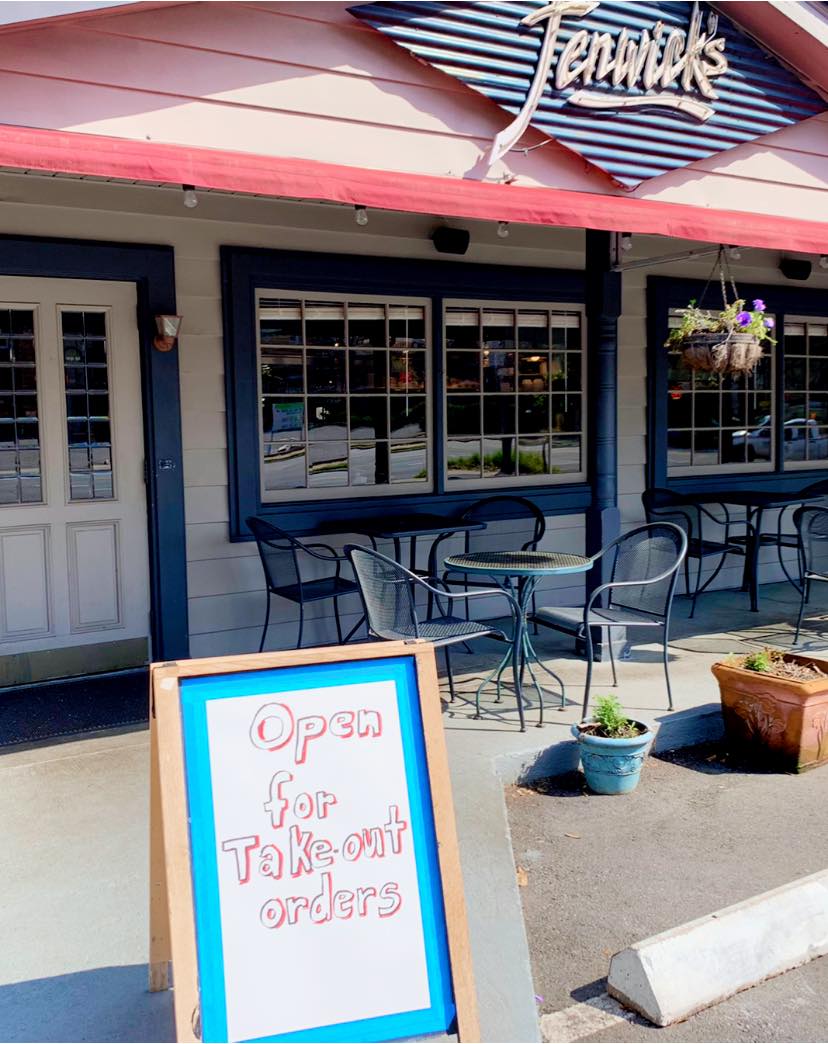 Fenwick's
Open
for
Take-out
orders